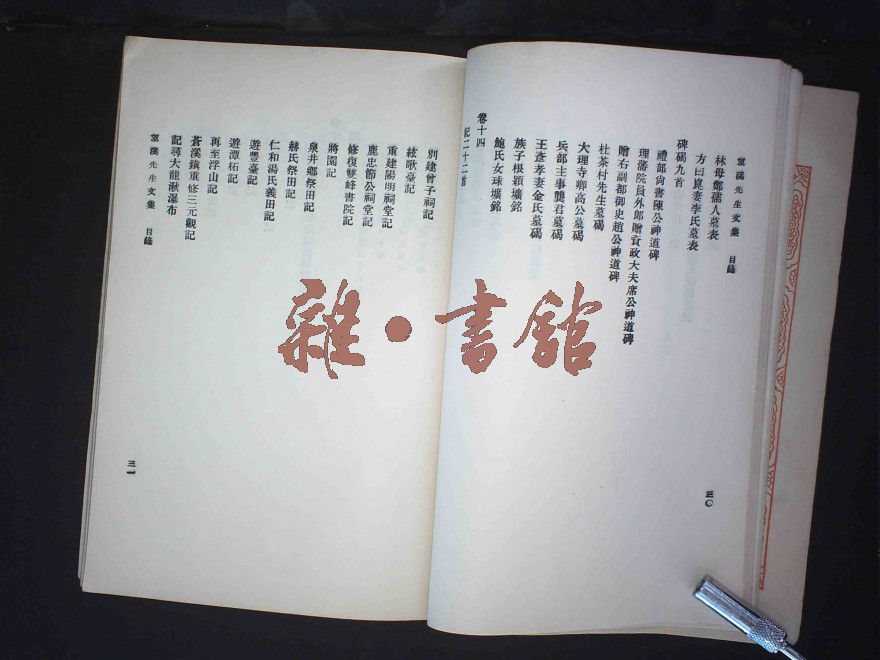 望溪先生文集 目錄
林母鄭孺人墓表
方曰崑妻李氏墓表
碑碣九首
禮部尚書陳公神道碑
理藩院員外郎贈資政大夫席公神道碑
贈右副都御史趙公神道碑
杜茶村先生墓碣
大理寺卿高公墓碣
兵部主事龔君墓碣
王彥孝妻金氏墓碣
族子根穎壙銘
鮑氏女球壙銘
卷十四
記二十二首
三〇
別建曾子祠記
絃歌臺記
重建陽明祠堂記
鹿忠節公祠堂記
修復雙峰書院記
將園記
泉井鄉祭田記
赫氏祭田記
仁和湯氏義田記
遊豐臺記
遊潭柘記
再至浮山記
蒼溪鎮重修三元觀記
記尋大龍湫瀑布
望溪先生文集 目錄
三一
雜·書館